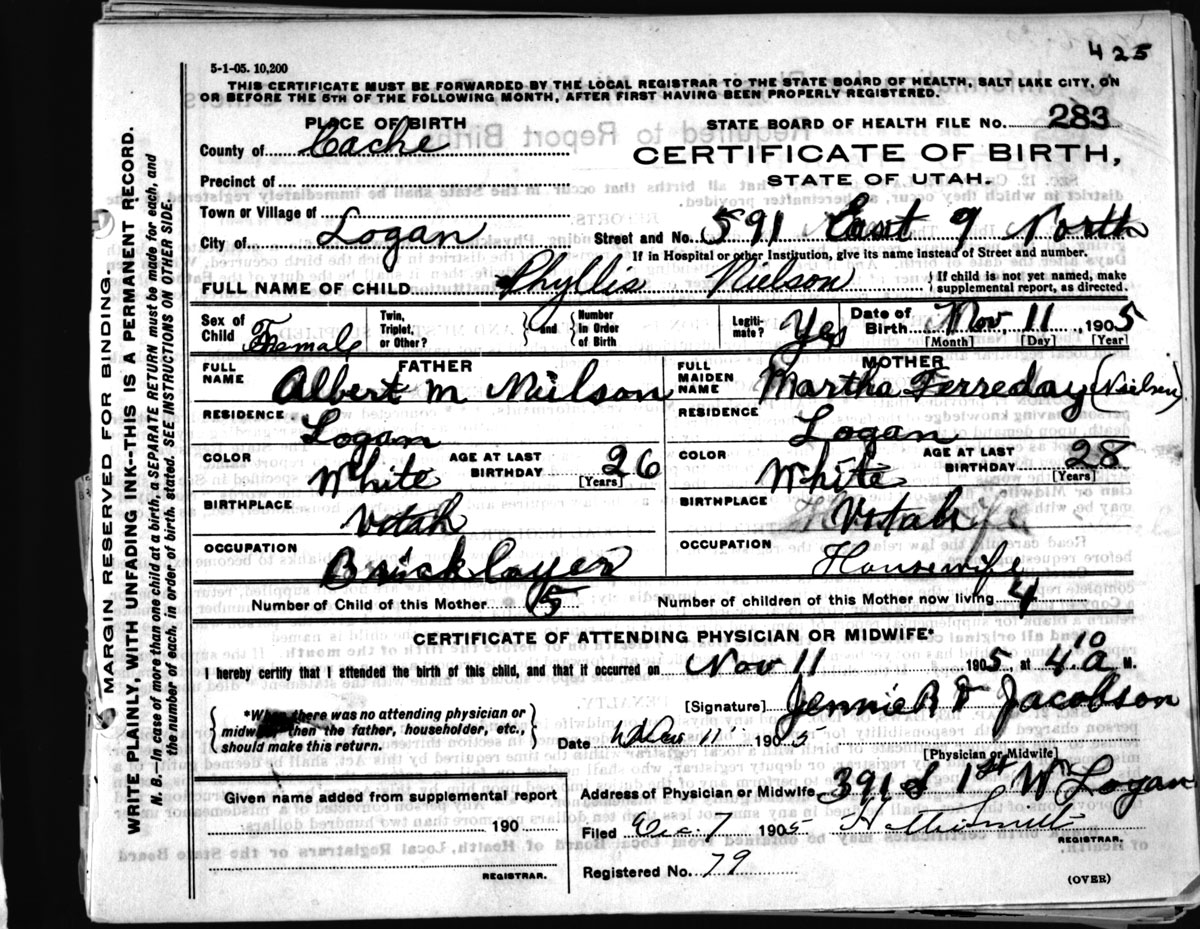 425
5-1-05. 10,200
THIS CERTIFICATE MUST BE FORWARDED BY THE LOCAL REGISTRAR TO THE STATE BOARD OF HEALTH, SALT LAKE CITY, ON
OR BEFORE THE 5TH OF THE FOLLOWING MONTH, AFTER FIRST HAVING BEEN PROPERLY REGISTERED.
PLACE OF BIRTH
STATE BOARD OF HEALTH FILE NO. 283
County of Cache
CERTIFICATE OF BIRTH,
Precinct of
STATE OF UTAH.
Town or Village of
City of Logan Street and No. 591 East 9 North
If in Hospital or other Institution, give its name instead of Street and number.
FULL NAME OF CHILD Phyllis Nielson { If child is not yet named, make supplemental report, as directed.
Sex of Child Female Twin, Triplet, or Other? } and { Number in Order of Birth Legiti-mate? Yes Date of Birth Nov 11, 1905
[Month] [Day] [Year]
FATHER MOTHER
FULL NAME Albert M Nielson FULL MAIDEN NAME Martha Ferreday (Nielsen)
RESIDENCE Logan RESIDENCE Logan
COLOR White AGE AT LAST BIRTHDAY 26 [Years] COLOR White AGE AT LAST BIRTHDAY 28 [Years]
BIRTHPLACE Utah BIRTHPLACE Utah
OCCUPATION Bricklayer OCCUPATION Housewife
Number of Child of this Mother 5 Number of children of this Mother now living 4
CERTIFICATE OF ATTENDING PHYSICIAN OR MIDWIFE*
I hereby certify that I attended the birth of this child, and that it occurred on Nov 11 1905, at 4 10 A M.
{ *When there was no attending physician or midwife, then the father, householder, etc., should make this return. }
[Signature] Jennie R Jacobson
Date 11 1905
[Physician or Midwife]
Given name added from supplemental report
Address of Physician or Midwife 391 S 1st W Logan
190
Filed Dec. 7 1905
REGISTRAR.
Registered No. 79
REGISTRAR.
(OVER)
MARGIN RESERVED FOR BINDING.
WRITE PLAINLY, WITH UNFADING INK--THIS IS A PERMANENT RECORD.
N. B.--In case of more than one child at a birth, a SEPARATE RETURN must be made for each, and
the number of each, in order of birth, stated. SEE INSTRUCTIONS ON OTHER SIDE.